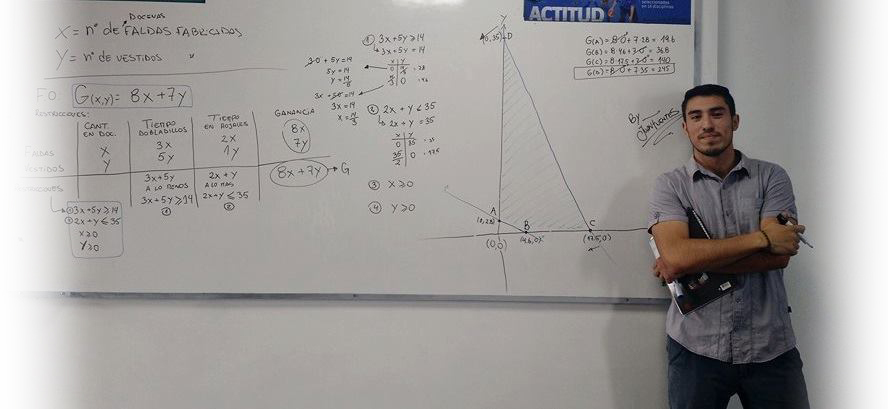 ACTITUD
DOCENAS
X = nº de FALDAS FABRICADAS
Y = nº de VESTIDOS "
FO: G(x,y) = 8x + 7y
RESTRICCIONES:
CANT. EN DOC. TIEMPO DOBLADILLOS TIEMPO EN ROJALES GANANCIA
FALDAS X 3X 2X 8X
VESTIDOS Y 5Y 1Y 7Y
3x+5y 2x + y 8X + 7Y → G
A LO MENOS A LO MAS
3x+5y ≥ 14 2x+y ≤ 35
① ②
① 3x+5y ≥ 14
② 2x+y ≤ 35
X ≥ 0
Y ≥ 0
① 3x + 5y ≥ 14
3x + 5y = 14
3·0 + 5y = 14
5y = 14
y = 14/5
3x + 5·0 = 14
3x = 14
x = 14/3
② 2x + y ≤ 35
2x + y = 35
x y
0 35
35/2 0
③ X ≥ 0
④ Y ≥ 0
Y
(0,35) D
A
B
C
(17.5,0)
(0,0)
G(A) = 8·0 + 7·28 = 19.6
G(B) = 8·46 + 7·0 = 36.8
G(C) = 8·17.5 + 7·0 = 140
G(D) = 8·0 + 7·35 = 245
By